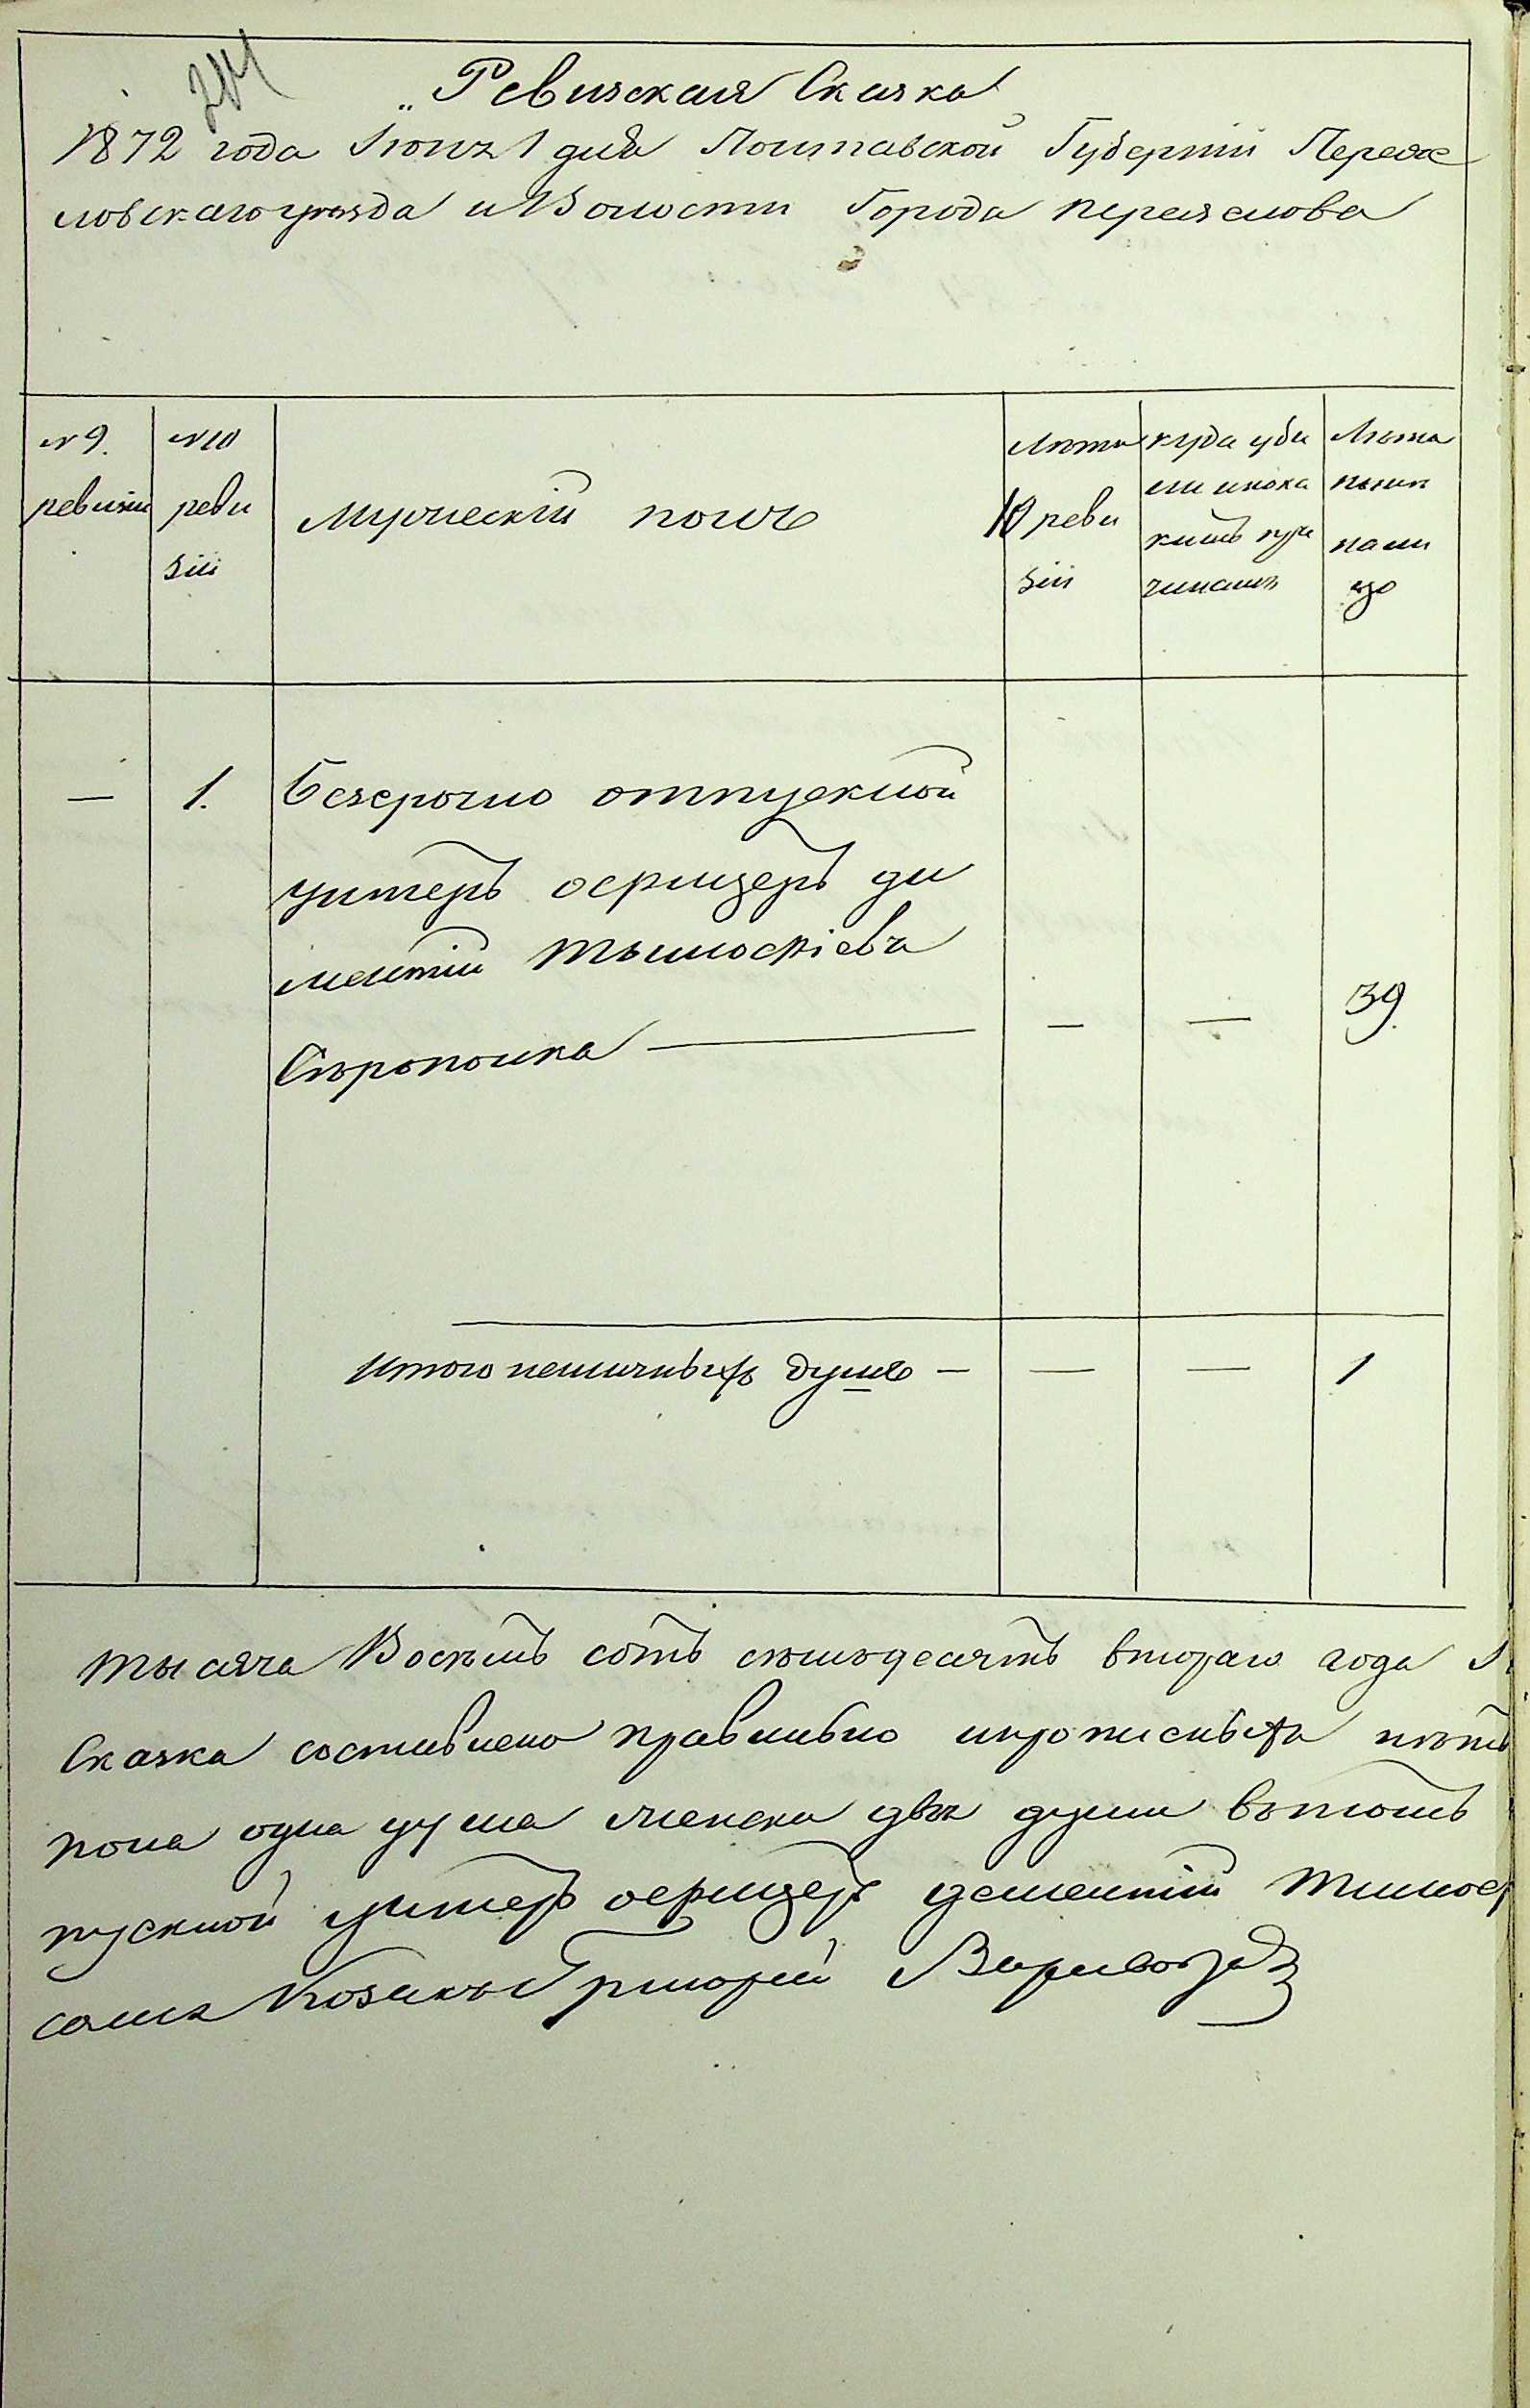 „Ревизская Сказка
1872 года Іюнz 1 дня Полтавской Губерніи Перея
словскаго уезда и Волости Города переяслова
№ 9.
ревизіи
№ 10
реви
зіи
Мужескій полъ
Лѣта
10 реви
зіи
куда убы
ли
Лѣта
—
1.
безсрочно отпускной
унтеръ офицеръ ди
ментій тымофіева
Сѣрополка
—
—
39.
Итого неличныхъ душъ —
—
—
1
тысяча Восѣмъ сотъ сѣмьдесятъ втораго года
Сказка составлена правильно ипрописныхъ нѣтъ
пола одна душа женска двѣ души
пускной унтеръ офицеръ дементій Тимоф
Козакъ Григорій